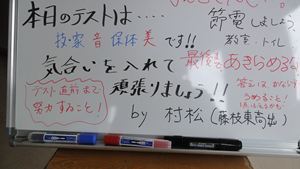 本日のテストは‥‥
技・家 音 保体 美 です!!
節電しましょう
教室・トイレ
気合いを入れて
最後まであきらめるな
頑張りましょう!!
テスト直前まで
努力すること!
答えは、かならず
うめること!
by 村松(藤枝東高出)